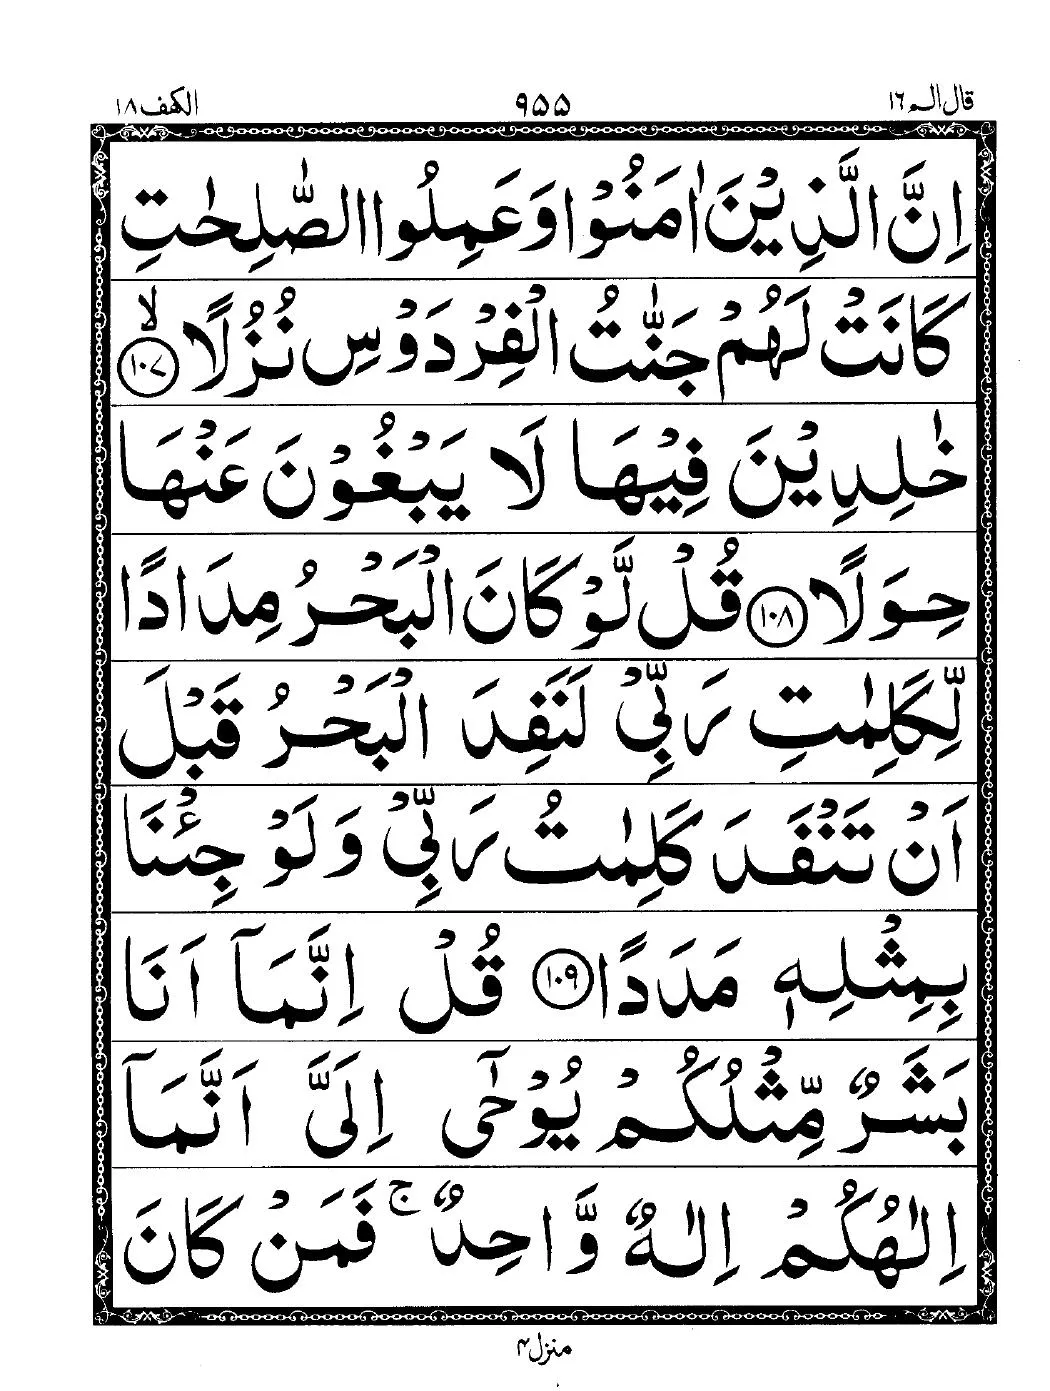 قال الم ١٦ ٩٥٥ الكهف ١٨
اِنَّ الَّذِيْنَ اٰمَنُوْا وَعَمِلُوا الصّٰلِحٰتِ
كَانَتْ لَهُمْ جَنّٰتُ الْفِرْدَوْسِ نُزُلًا ۙ ١٠٧
خٰلِدِيْنَ فِيْهَا لَا يَبْغُوْنَ عَنْهَا
حِوَلًا ١٠٨ قُلْ لَّوْ كَانَ الْبَحْرُ مِدَادًا
لِّكَلِمٰتِ رَبِّيْ لَنَفِدَ الْبَحْرُ قَبْلَ
اَنْ تَنْفَدَ كَلِمٰتُ رَبِّيْ وَلَوْ جِئْنَا
بِمِثْلِهٖ مَدَدًا ١٠٩ قُلْ اِنَّمَآ اَنَا
بَشَرٌ مِّثْلُكُمْ يُوْحٰٓى اِلَيَّ اَنَّمَآ
اِلٰهُكُمْ اِلٰهٌ وَّاحِدٌ ۚ فَمَنْ كَانَ
منزل ٤